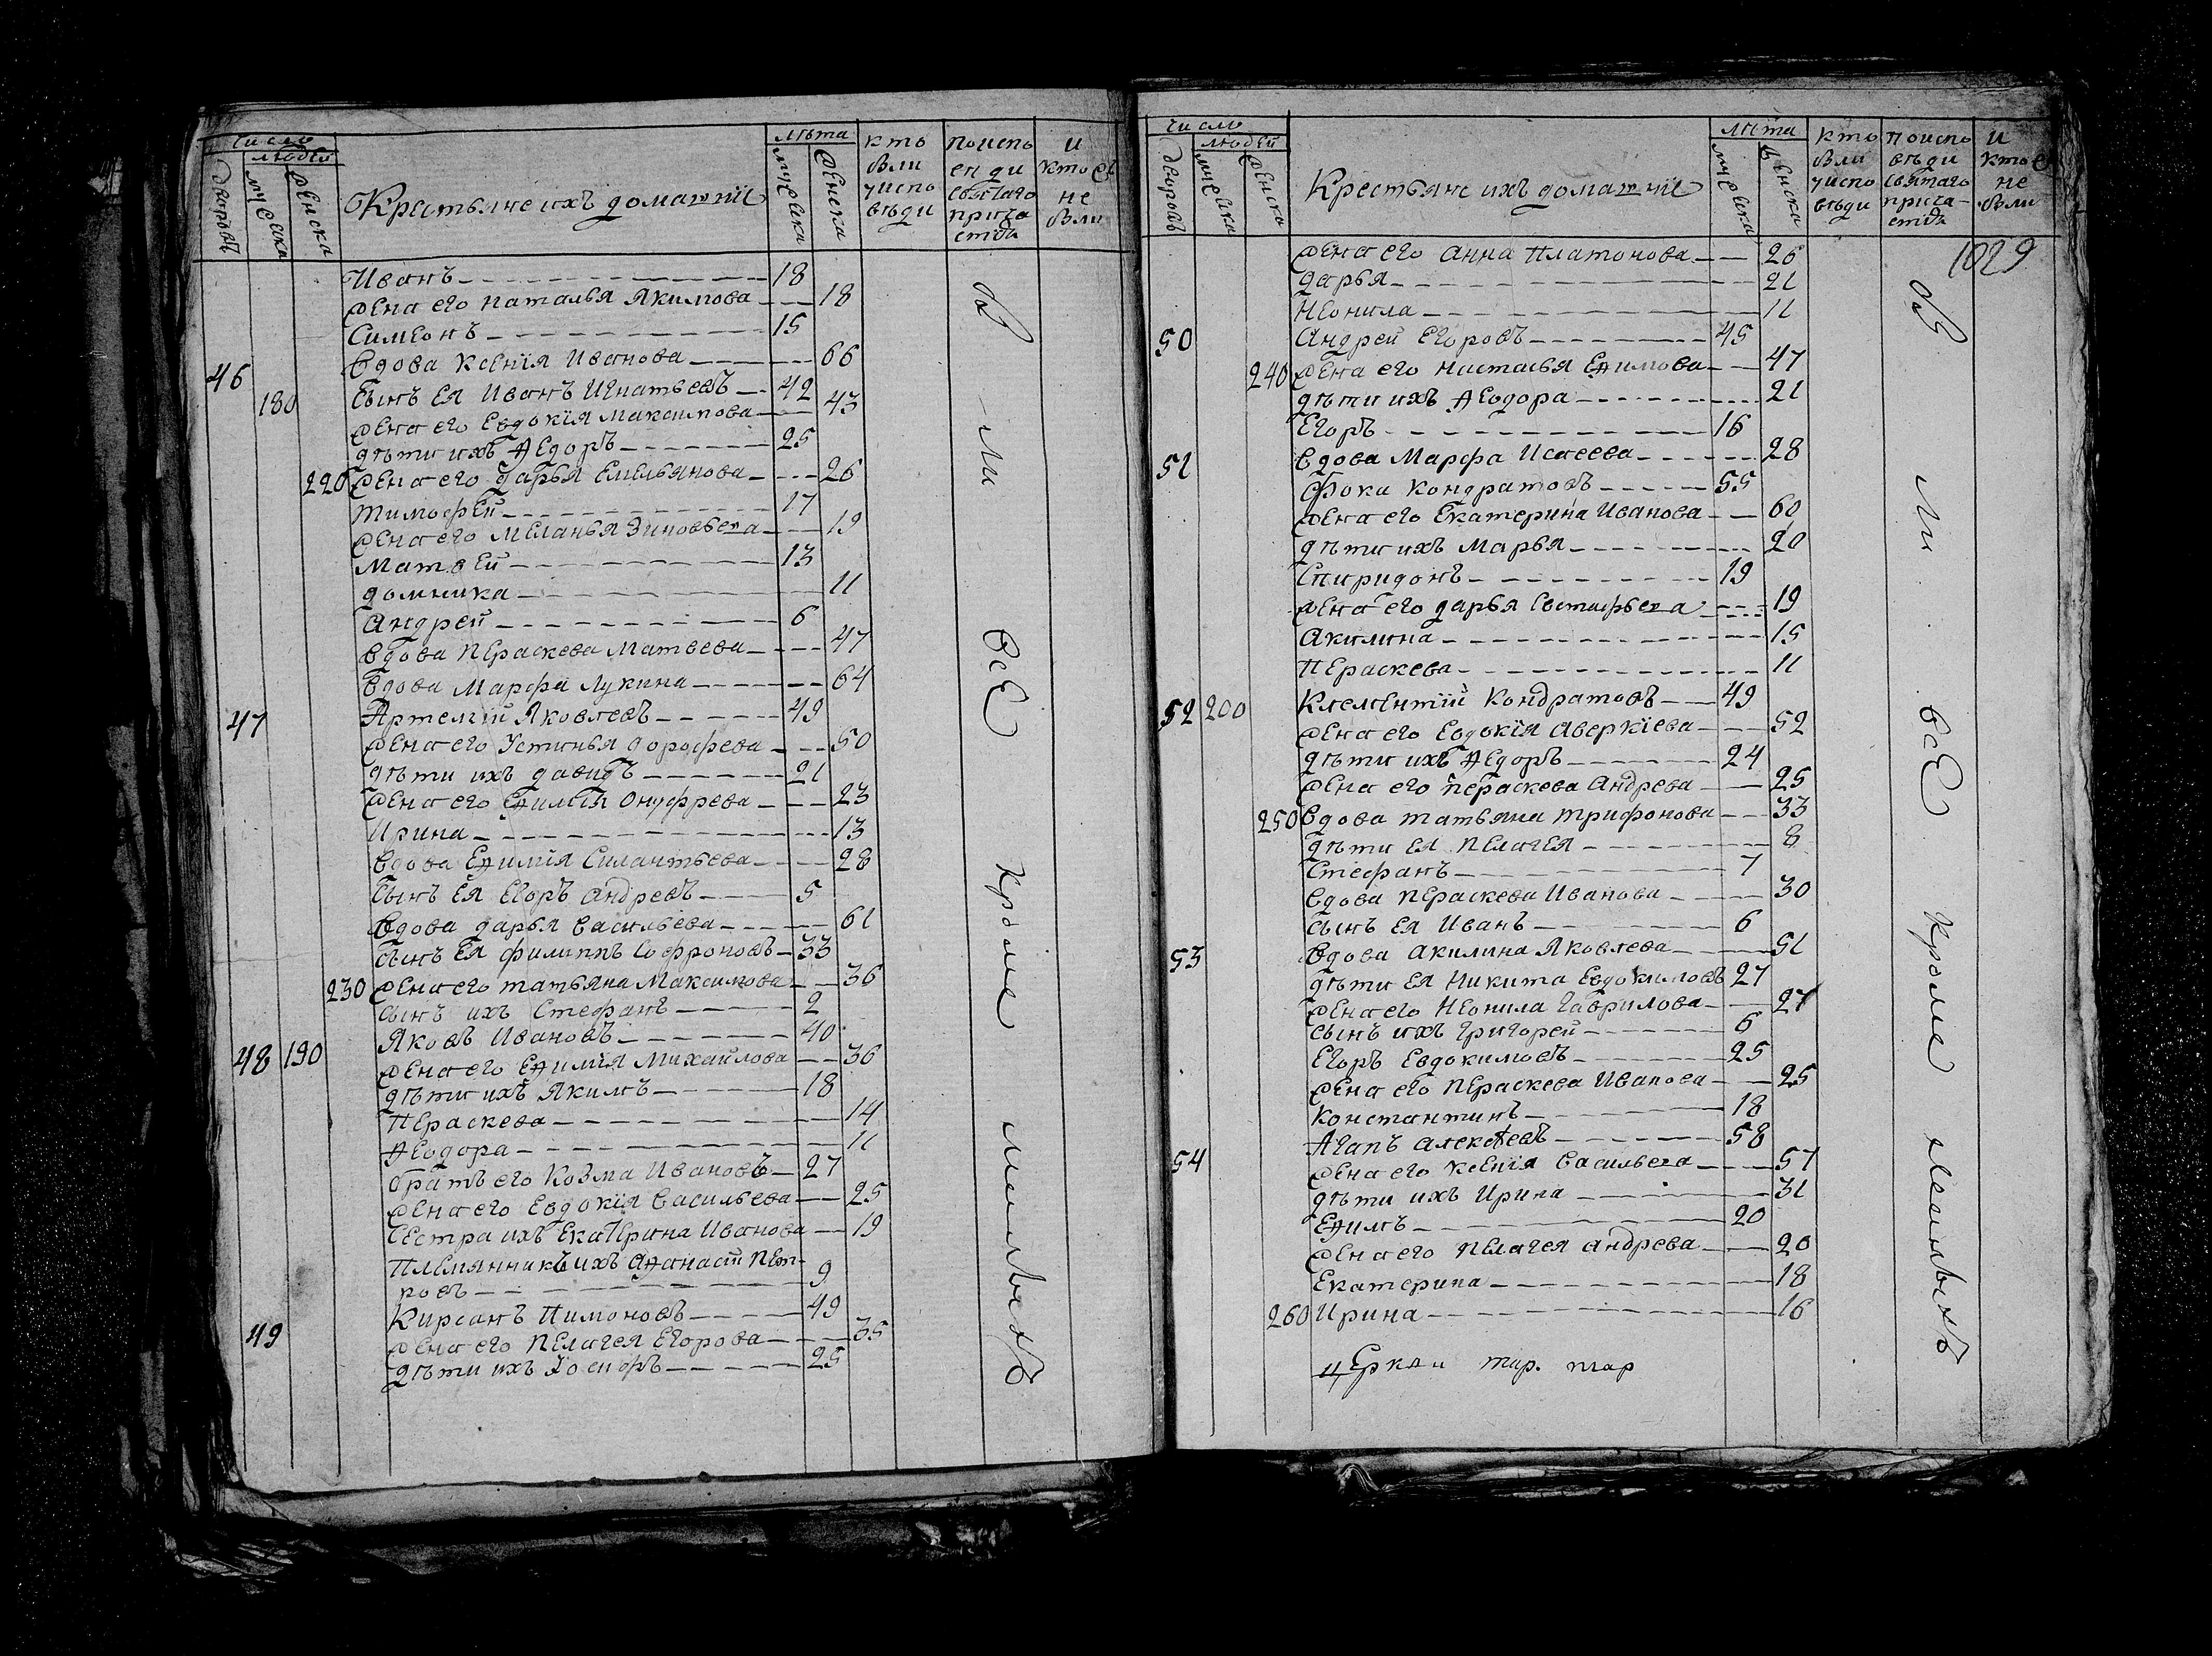 число
людей
дворовъ
мужеска
женска
Крестьяне ихъ домашнїе
лѣта
мужеска
женска
кто были у исповѣди
по исповеди святаго причастїя
и кто же не были
Иванъ 18
Жена его Наталья Якимова 18
Симеонъ 15
46 Вдова Ксенїя Иванова 66
180 Сынъ Ея Иванъ Игнатьевъ 42
Жена его Евдокїя Максимова 43
дѣти ихъ Ѳедоръ 25
220 Жена его Дарья Емельянова 26
Тимофей 17
Жена его Меланья Зиновьева 19
Матвей 13
Домника 11
Андрей 6
Вдова Пераскева Матвеева 47
Вдова Марфа Лукина 64
47 Артемїй Яковлевъ 49
Жена его Устинья Дорофева 50
дѣти ихъ Давидъ 21
Жена его Еѳимїя Онуфрева 23
Ирина 13
Вдова Еѳимїя Силантьева 28
Сынъ Ея Егоръ Андревъ 5
Вдова Дарья Васильева 61
Сынъ Ея Филиппъ Софроновъ 33
230 Жена его Татьяна Максимова 36
Сынъ ихъ Стефанъ 2
48 190 Яковъ Ивановъ 40
Жена его Еѳимїя Михайлова 36
дѣти ихъ Якимъ 18
Пераскева 14
Ѳеодора 11
Братъ его Козма Ивановъ 27
Жена его Евдокїя Васильева 25
Сестра ихъ Екатерина Иванова 19
Племянникъ ихъ Аѳанасїй Пет-
ровъ 9
49 Кирсанъ Пимоновъ 49
Жена его Пелагея Егорова 35
дѣти ихъ Іосифъ 25
бы ли все кроме
число
людей
дворовъ
мужеска
женска
Крестьяне ихъ домашнїе
лѣта
мужеска
женска
кто были у исповѣди
по исповѣди святаго причастїя
и кто же не были
1029
Жена его Анна Платонова 26
Дарья 21
Неонила 11
50 Андрей Егоровъ 45
240 Жена его Настасья Еѳимова 47
дѣти ихъ Ѳеодора 21
Егоръ 16
Вдова Марфа Исаеева 28
51 Фока Кондратовъ 55
Жена его Екатерина Иванова 60
дѣти ихъ Марья 20
Спиридонъ 19
Жена его Дарья Евстафьева 19
Акилина 15
Пераскева 11
52 200 Клементїй Кондратовъ 49
Жена его Евдокїя Аверкїева 52
дѣти ихъ Ѳедоръ 24
Жена его Пераскева Андрева 25
250 Вдова Татьяна Трифонова 33
дѣти Ея Пелагея 8
Стефанъ 7
Вдова Пераскева Иванова 30
Сынъ Ея Иванъ 6
53 Вдова Акилина Яковлева 51
дѣти Ея Никита Евдокимовъ 27
Жена его Неонила Гаврилова 27
Сынъ ихъ Григорей 6
Егоръ Евдокимовъ 25
Жена его Пераскева Иванова 25
Константинъ 18
54 Агапъ Алексѣевъ 58
Жена его Ксенїя Васильева 57
дѣти ихъ Ирина 31
Еѳимъ 20
Жена его Пелагея Андрева 20
Екатерина 18
260 Ирина 16
бы ли все кроме